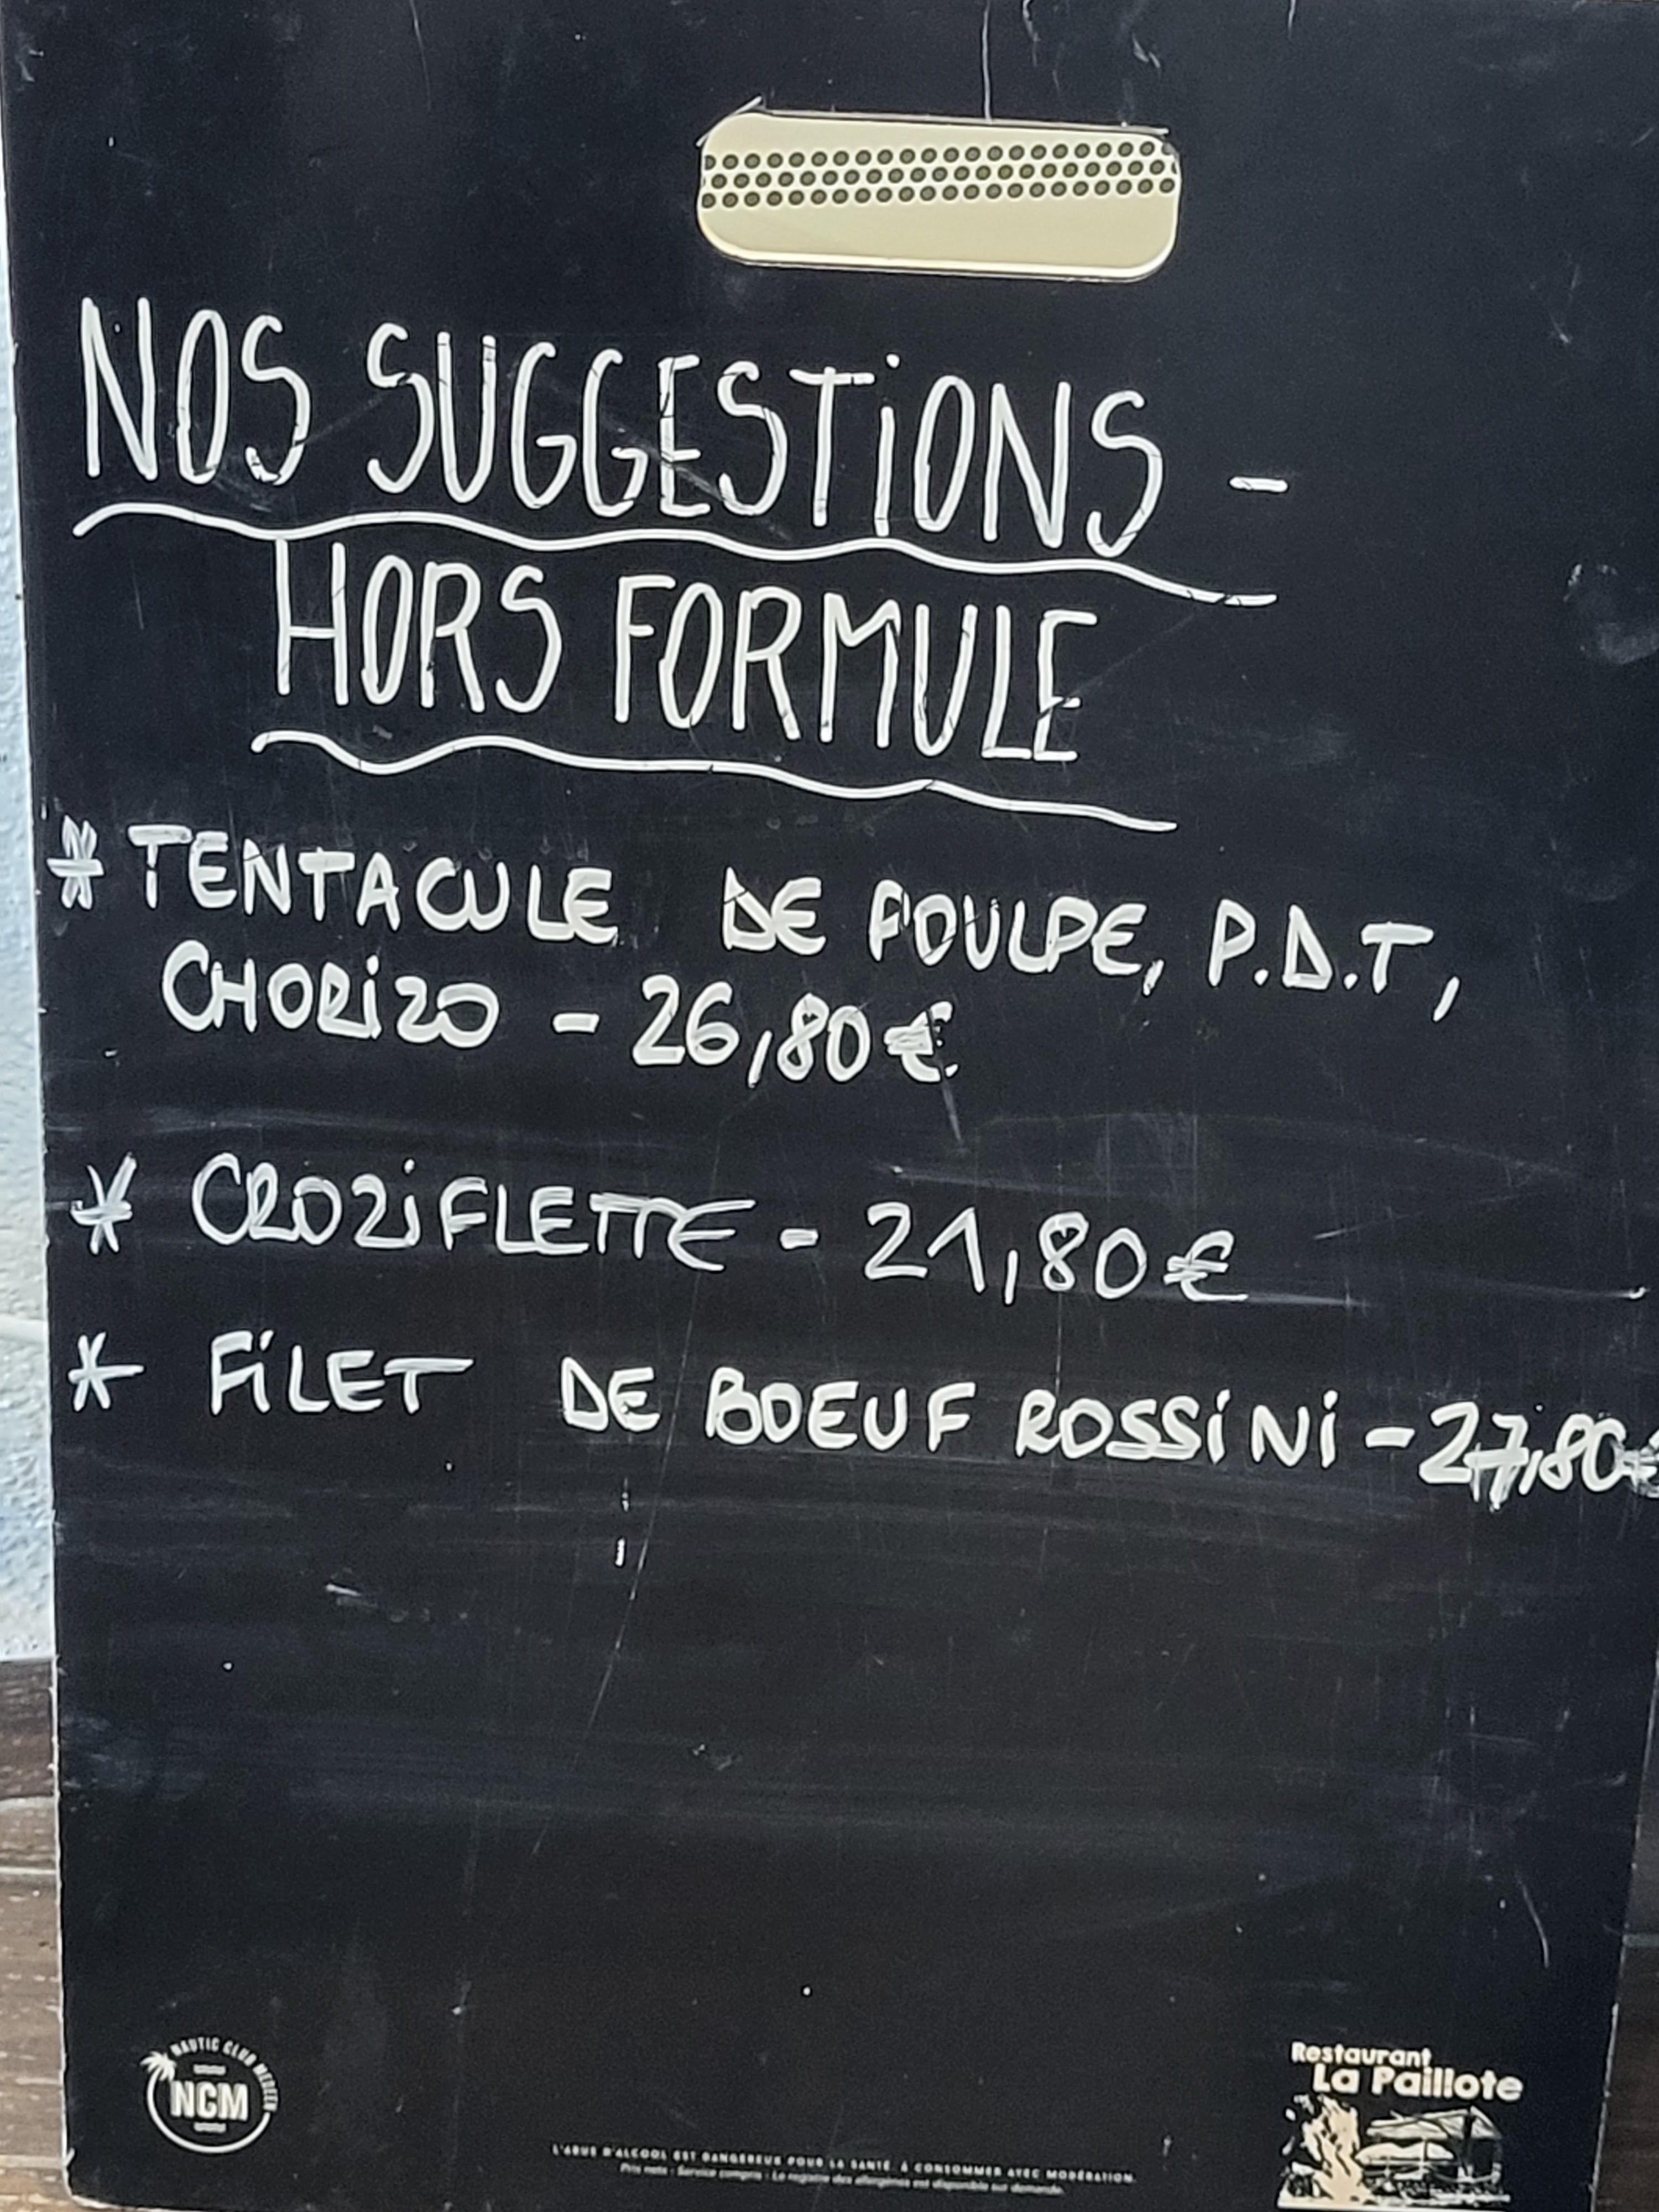 NOS SUGGESTIONS -
HORS FORMULE
* TENTACULE DE POULPE, P.D.T,
CHORIZO - 26,80€
* CROZIFLETTE - 21,80€
* FILET DE BOEUF ROSSINI - 27,80€
NAUTIC CLUB
NCM
Restaurant
La Paillote
L'ABUS D'ALCOOL EST DANGEREUX POUR LA SANTÉ. À CONSOMMER AVEC MODÉRATION.
Prix nets - Service compris - Le registre des allergènes est disponible sur demande.